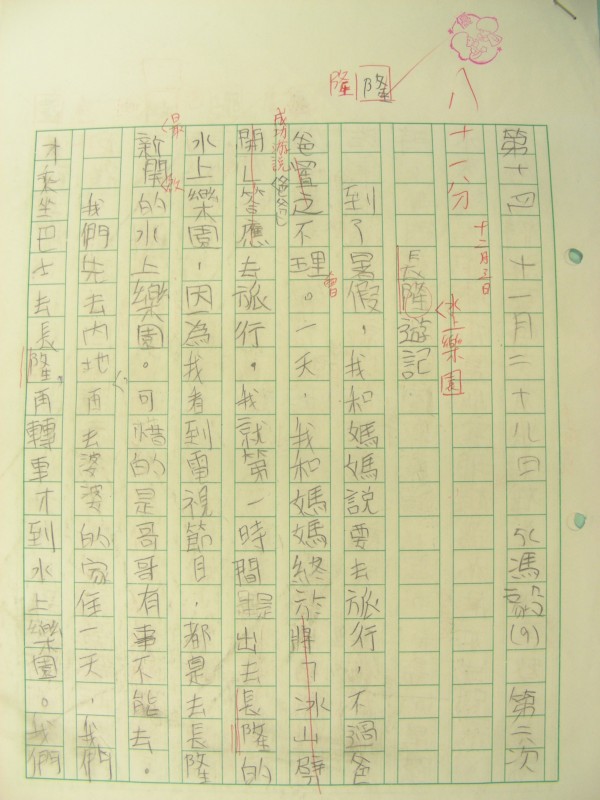 第十四 十一月二十八日 5C馮毅(9) 第六次
八十一分
十二月三日
長隆遊記
水上樂園
隆
隆
到了暑假，我和媽媽說要去旅行，不過爸
爸置之不理。一天，我和媽媽終於將「冰山劈
成功游說
爸爸
開」答應去旅行。我就第一時間提出去長隆的
水上樂園，因為我看到電視節目，都是去長隆
最
新開的水上樂園。可惜的是哥哥有事不能去。
我們先去內地再去婆婆的家住一天，我們
才乘坐巴士去長隆。再轉車才到水上樂園。我們